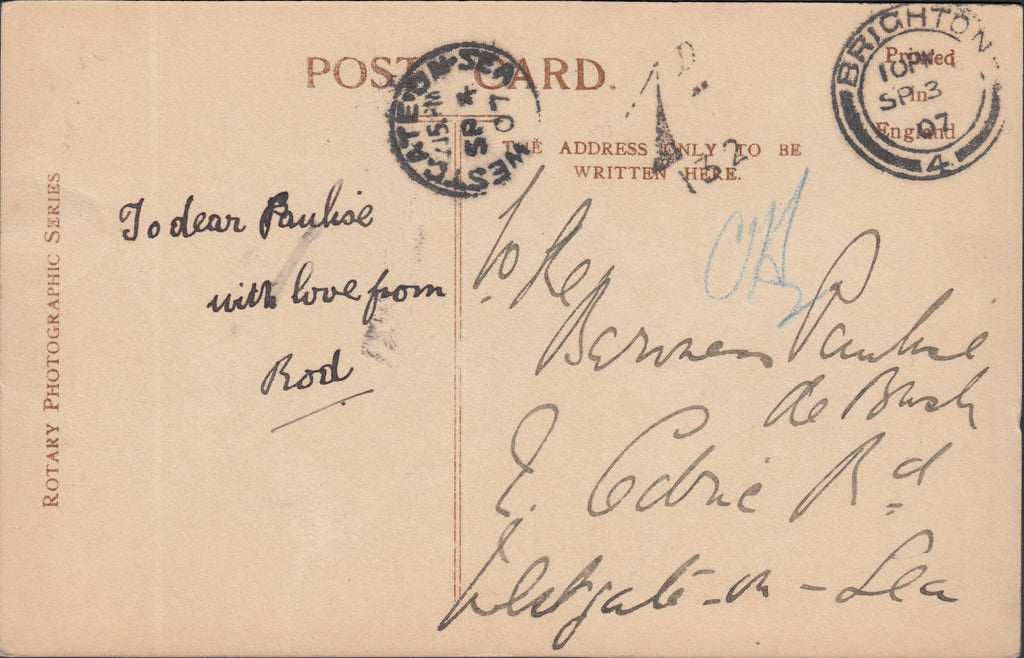 POST CARD.
THE ADDRESS ONLY TO BE
WRITTEN HERE.
Printed
in
England
BRIGHTON
10 PM
SP 3
07
4
WESTGATE-ON-SEA
SP 4
07
132
ROTARY PHOTOGRAPHIC SERIES
To dear Pauline
with love from
Rod
To the
Baroness Pauline
de Bush
Cedric Rd
Westgate-on-Sea